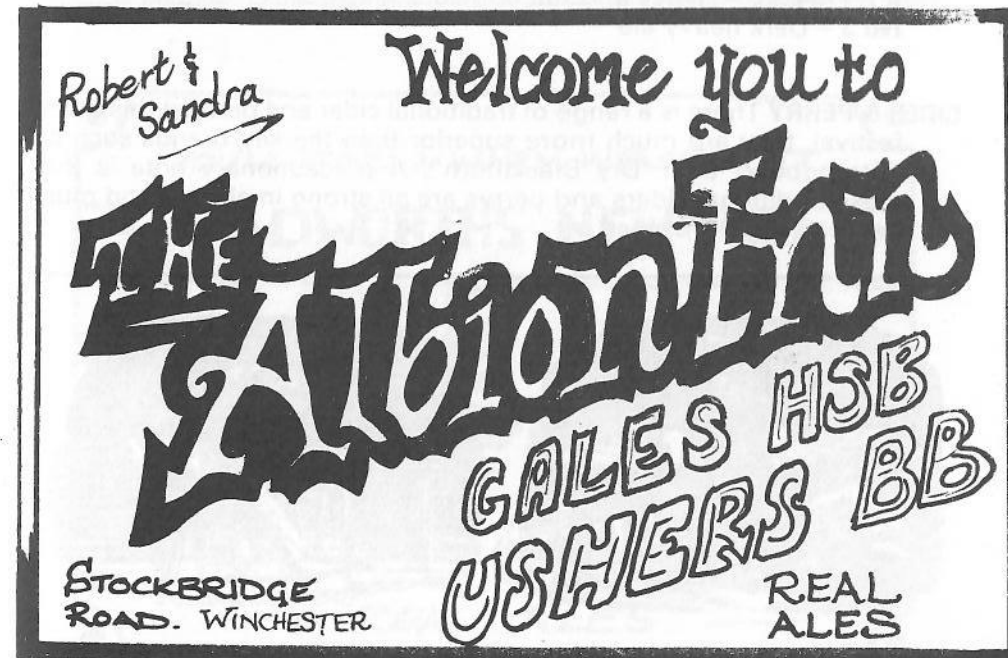 Robert &
Sandra
Welcome you to
THE
Albion Inn
GALES HSB
USHERS BB
STOCKBRIDGE
ROAD. WINCHESTER
REAL
ALES